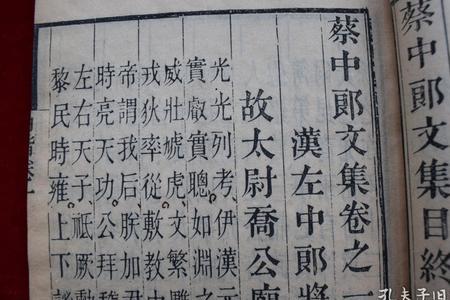 蔡中郎文集目終
蔡中郎文集卷之一
漢左中郎將
故太尉喬公廟
光光列考、伊漢元
實叡實聰。如淵之
威壯虓虎、文繁
戎狄率從。敷教中
帝謂我后、朕加君
時亮天功。公拜
左右天子、祗厥勳
黎民時雍。上下
孔夫子旧